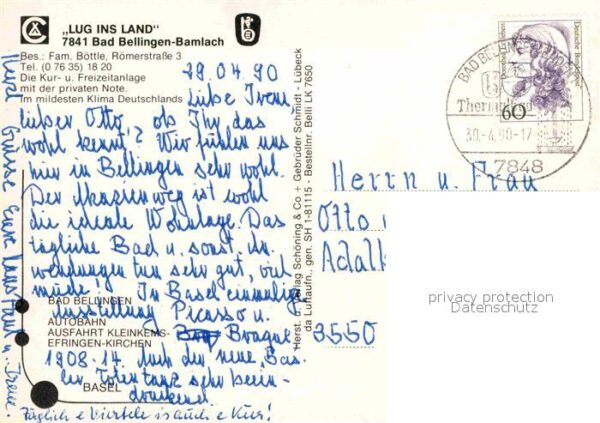 „LUG INS LAND"
7841 Bad Bellingen-Bamlach
Bes.: Fam. Böttle, Römerstraße 3
Tel. (0 76 35) 18 20
Die Kur- u. Freizeitanlage
mit der privaten Note.
Im mildesten Klima Deutschlands
29.04.90
Liebe Irene,
lieber Otto, ob Ihr das
wohl kennt? Wir fühlen uns
hier in Bellingen sehr wohl.
Der Akazienweg ist wohl
die ideale Wohnlage. Das
tägliche Bad u. sonst. An-
wendungen tun sehr gut, viel
müde! In Basel einmalige
Ausstellung Picasso u.
Braque
1908-14. Auch der neue Bas-
ler Totentanz sehr beein-
druckend.
Täglich e Viertele is auch e Kur!
Herzl Grüsse Eure
u. Irene.
BAD BELLINGEN
AUTOBAHN
AUSFAHRT KLEINKEMS-
EFRINGEN-KIRCHEN
BASEL
Herst. u. Verlag Schöning & Co + Gebrüder Schmidt - Lübeck
da Luftaufn., gen. SH 1-81115 - Bestellnr. Belli LK 7650
Deutsche Bundespost
60
BAD BELLINGEN
30.-4.90-17
7848
Herrn u. Frau
Otto
Adal
3550
privacy protection
Datenschutz